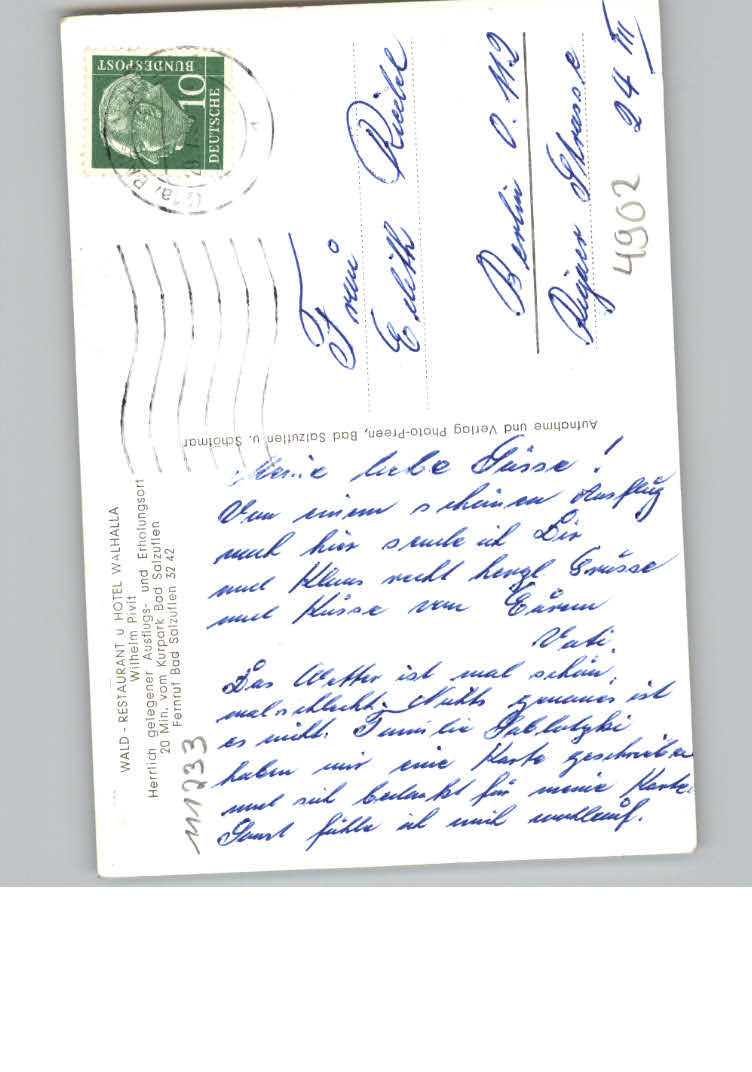 WALD - RESTAURANT u HOTEL WALHALLA
Wilhelm Pivit
Herrlich gelegener Ausflugs- und Erholungsort
20 Min. vom Kurpark Bad Salzuflen
Fernruf Bad Salzuflen 32 42
11233
Meine liebe Süsse!
Von einem schönen Ausflug
nach hier sende ich Dir
und Klaus recht herzl. Grüsse
und Küsse von Eurem
Vati.
Das Wetter ist mal schön,
mal schlecht. Nichts genaues ist
es nicht. Familie
haben mir eine Karte geschrieben
und sich bedankt für meine Karte.
Sonst fühle ich mich wohlauf.
Aufnahme und Verlag Photo-Preen, Bad Salzuflen u. Schötmar
DEUTSCHE
BUNDESPOST
10
Frau
Edith Riedel
Berlin O. 112
Rigaer Strasse
24 III
4902